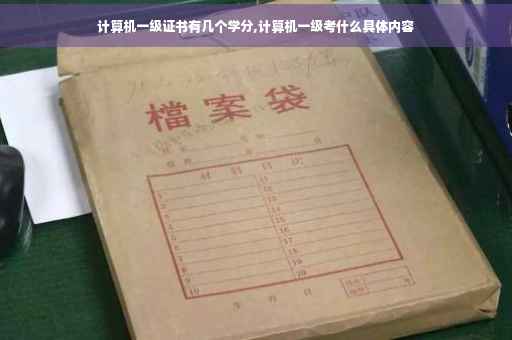 计算机一级证书有几个学分,计算机一级考什么具体内容
檔案袋
材料目次
1 11
2 12
3 13
4 14
5 15
6 16
7 17
8 18
9 19
10 20
年 月 日